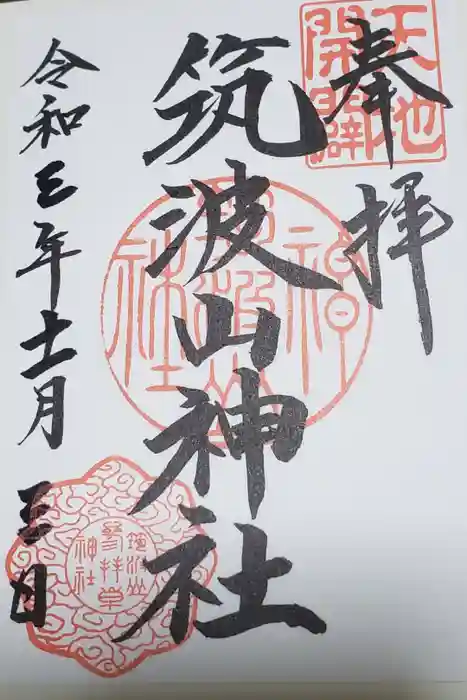 奉拝
天地
開闢
筑波山神社
筑波山
神社
令和三年十一月三日
筑波山
参拝章
神社